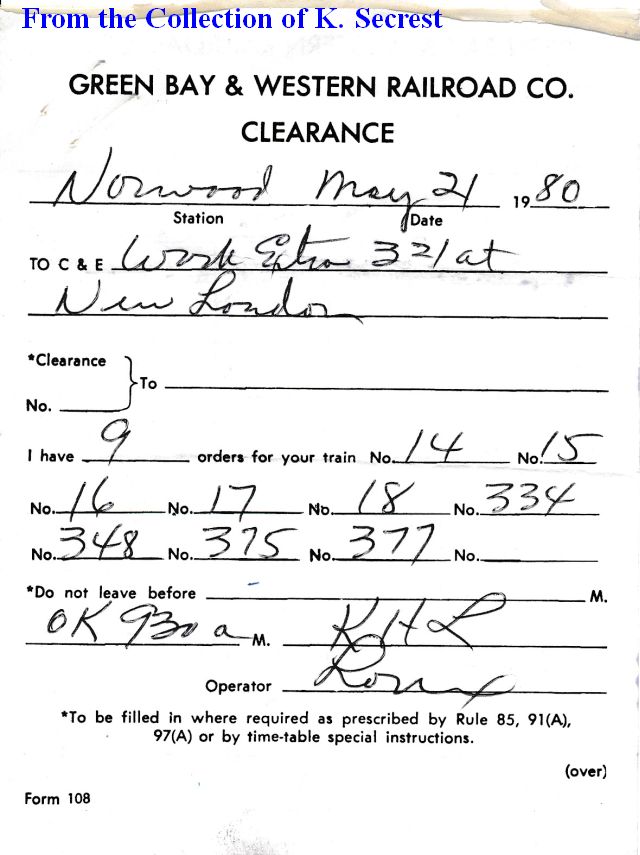 From the Collection of K. Secrest
GREEN BAY & WESTERN RAILROAD CO.
CLEARANCE
Norwood May 21 1980
Station Date
TO C & E Work Extra 321 at
New London
*Clearance
No. To
I have 9 orders for your train No. 14 No. 15
No. 16 No. 17 No. 18 No. 334
No. 348 No. 375 No. 377 No.
*Do not leave before M.
OK 930 a M. KHL
Operator
*To be filled in where required as prescribed by Rule 85, 91(A),
97(A) or by time-table special instructions.
(over)
Form 108